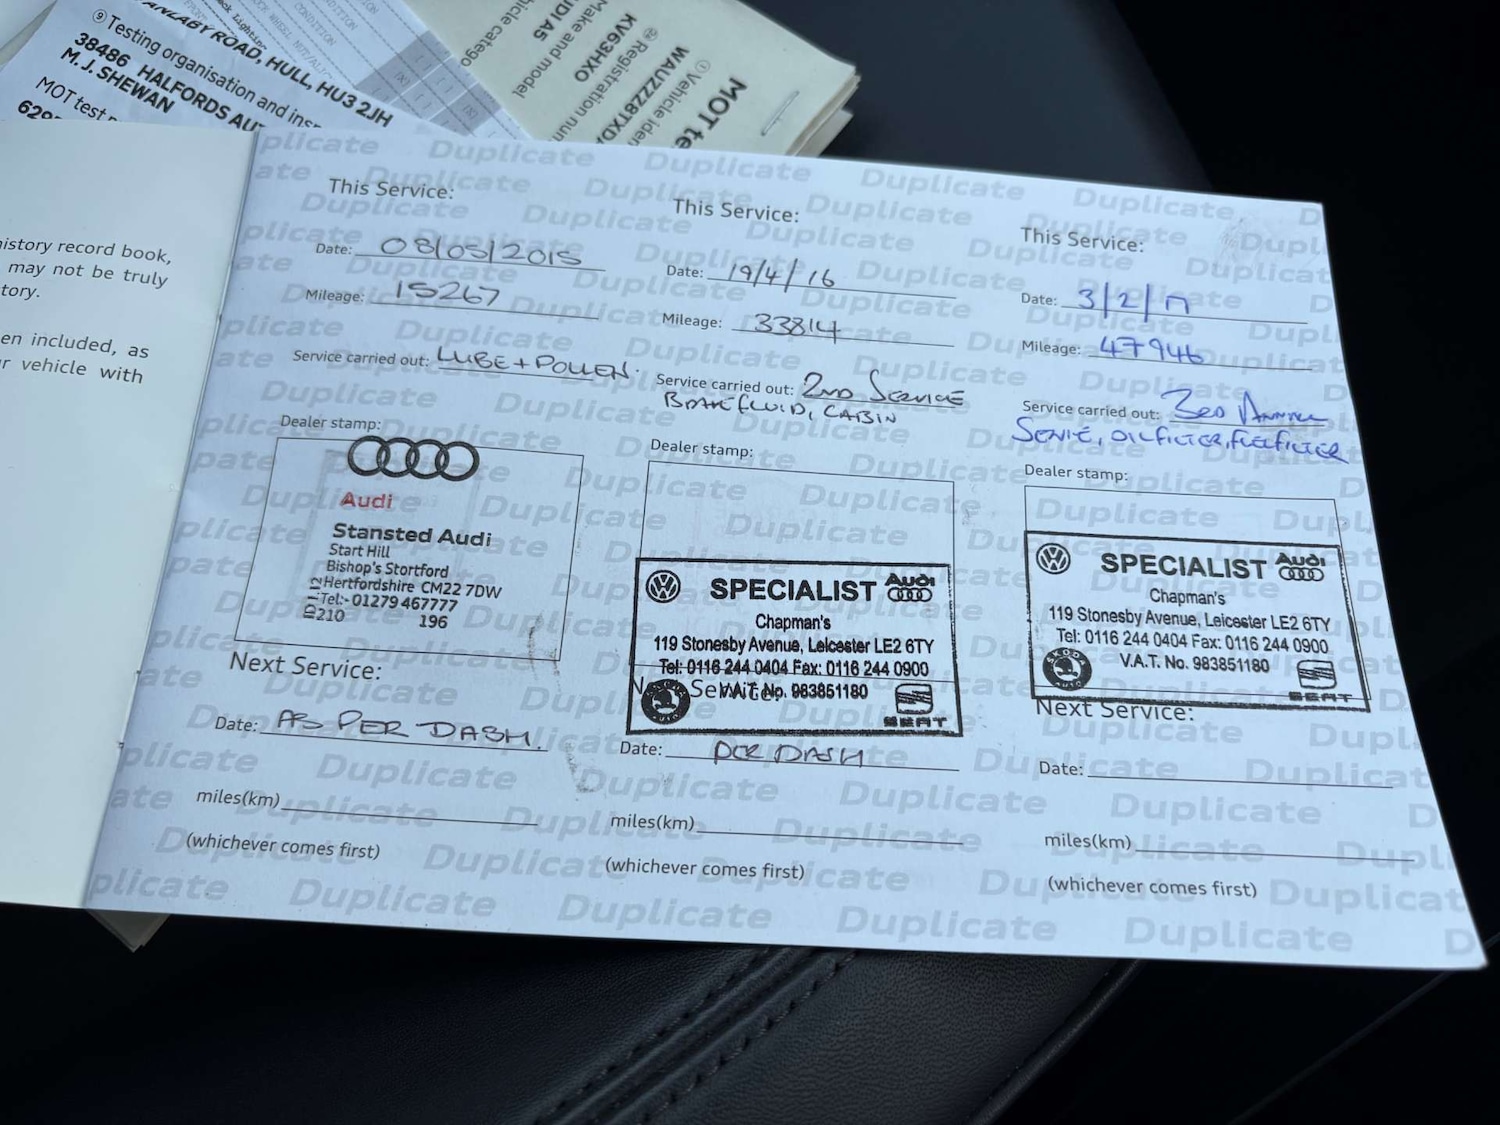 ⑨ Testing organisation and
38486 HALFORDS
M. J. SHEWAN
MOT test
ROAD, HULL, HU3 2JH
CONDITION
MOT te
① Vehicle iden
WAUZZZ8TXDA
Registration num
KV63HXO
Make and model
UDI A5
istory record book,
may not be truly
tory.
en included, as
r vehicle with
This Service:
Date: 08/05/2015
Mileage: 15267
Service carried out: LUBE + POLLEN.
Dealer stamp:
Audi
Stansted Audi
Start Hill
Bishop's Stortford
Hertfordshire CM22 7DW
Tel:- 01279 467777
210 196
Next Service:
Date: AS PER DASH.
miles(km)
(whichever comes first)
This Service:
Date: 19/4/16
Mileage: 33814
Service carried out: 2ND SERVICE
BRAKE FLUID, CABIN
Dealer stamp:
SPECIALIST Audi
Chapman's
119 Stonesby Avenue, Leicester LE2 6TY
Tel: 0116 244 0404 Fax: 0116 244 0900
V.A.T. No. 983851180
SKODA AUTO SEAT
Next Service:
Date: PER DASH
miles(km)
(whichever comes first)
This Service:
Date: 3/2/17
Mileage: 47946
Service carried out: 3RD ANNUAL
SERVICE, OIL FILTER, FUEL FILTER
Dealer stamp:
SPECIALIST Audi
Chapman's
119 Stonesby Avenue, Leicester LE2 6TY
Tel: 0116 244 0404 Fax: 0116 244 0900
V.A.T. No. 983851180
SKODA AUTO SEAT
Next Service:
Date:
miles(km)
(whichever comes first)
Duplicate